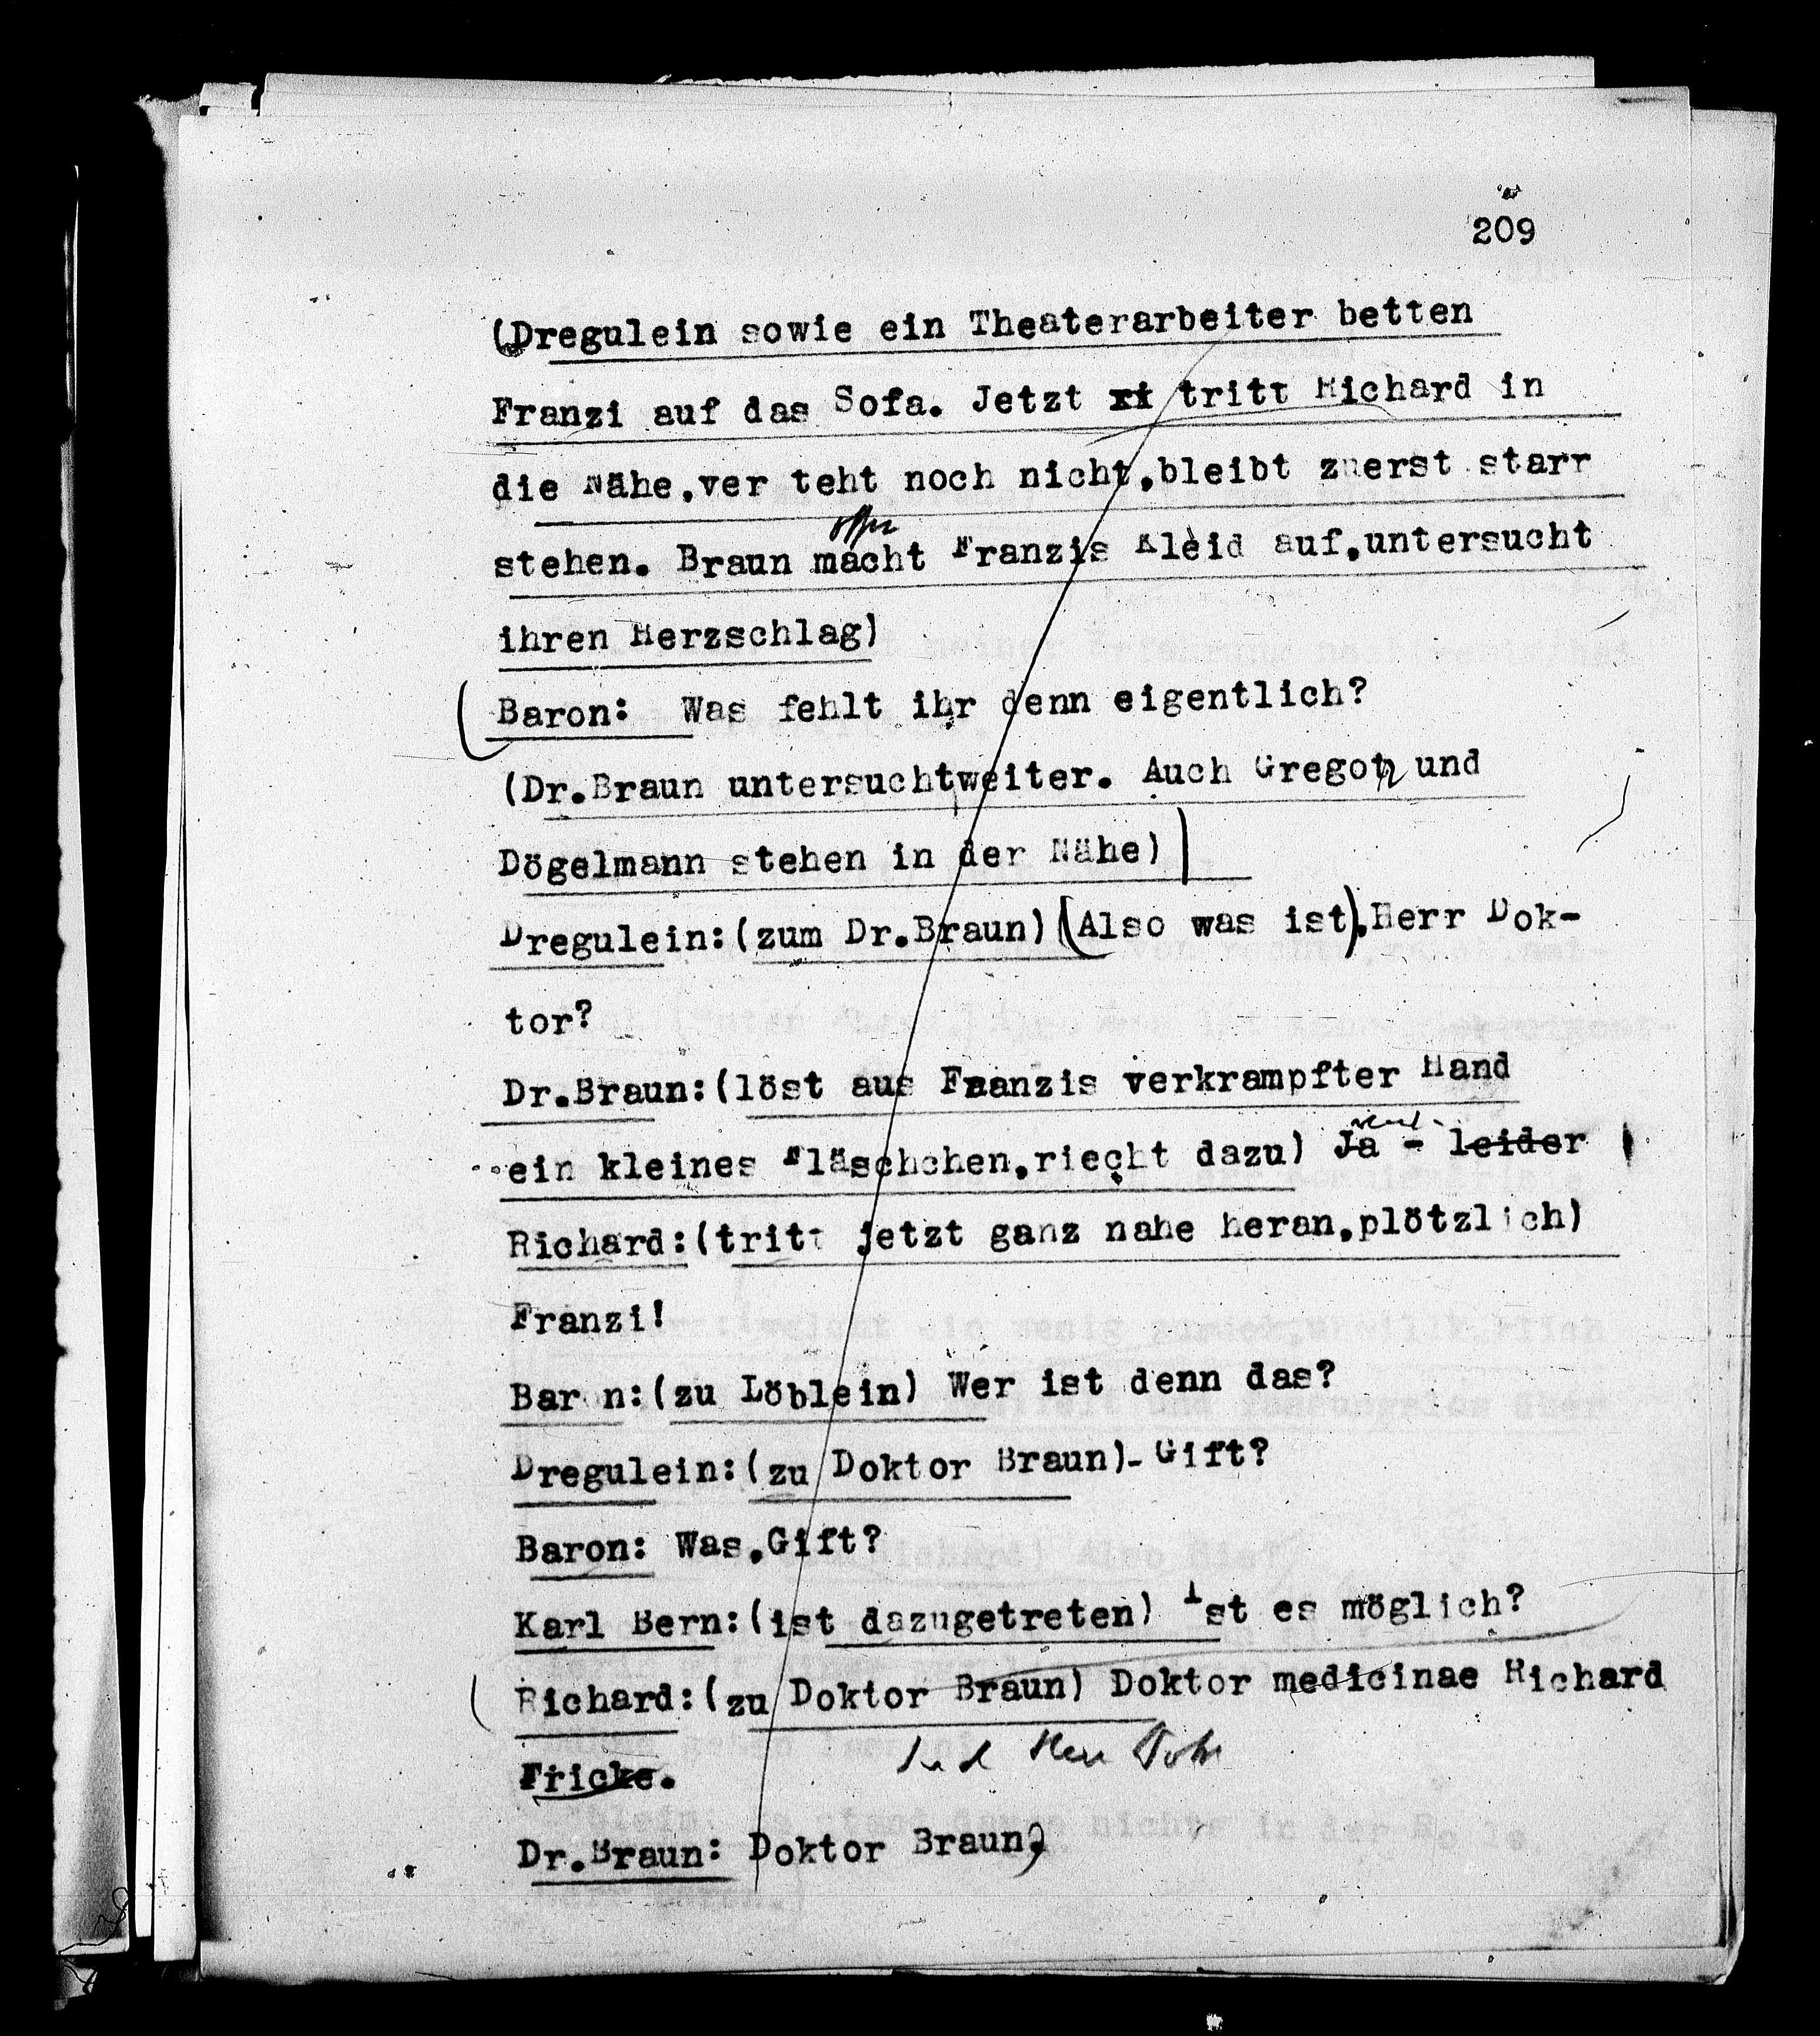 209
(Dregulein sowie ein Theaterarbeiter betten
Franzi auf das Sofa. Jetzt xi tritt Richard in
die Nähe,ver teht noch nicht,bleibt zuerst starr
stehen. Braun macht Franzis Kleid auf,untersucht
ihren Herzschlag)
Baron: Was fehlt ihr denn eigentlich?
(Dr.Braun untersuchtweiter. Auch Gregor und
Dögelmann stehen in der Nähe)
Dregulein:(zum Dr.Braun)(Also was ist),Herr Dok-
tor?
Dr.Braun:(löst aus Franzis verkrampfter Hand
ein kleines Fläschchen,riecht dazu) Ja - leider
Richard:(tritt jetzt ganz nahe heran,plötzlich)
Franzi!
Baron:(zu Löblein) Wer ist denn das?
Dregulein:(zu Doktor Braun)- Gift?
Baron: Was,Gift?
Karl Bern:(ist dazugetreten) Ist es möglich?
Richard:(zu Doktor Braun) Doktor medicinae Richard
Herr
Fricke.
Dr.Braun: Doktor Braun